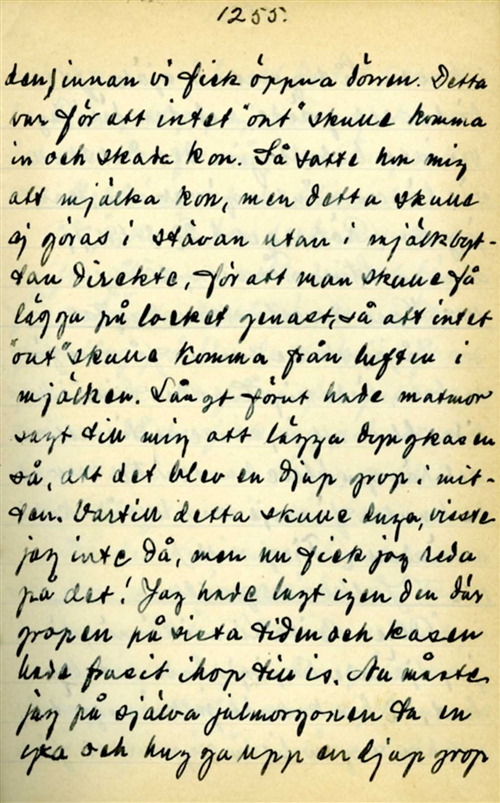 1255.
den) innan vi fick öppna dörren. Detta
var för att intet "ont" skulle komma
in och skada kon. Så satte hon mig
att mjälka kon, men detta skulle
ej göras i stävan utan i mjälkbyt-
tan direkte, för att man skulle få
lägga på locket genast, så att intet
"ont" skulle komma från luften i
mjälken. Långt förut hade matmor
sagt till mig att lägga dyngkasen
så, att det blev en djup grop i mit-
ten. Vartill detta skulle duga, visste
jag inte då, men nu fick jag reda
på det! Jag hade lagt igen den där
gropen på sista tiden och kasen
hade frusit ihop till is. Nu måste
jag på själva julmorgonen ta en
yxa och hugga upp en djup grop